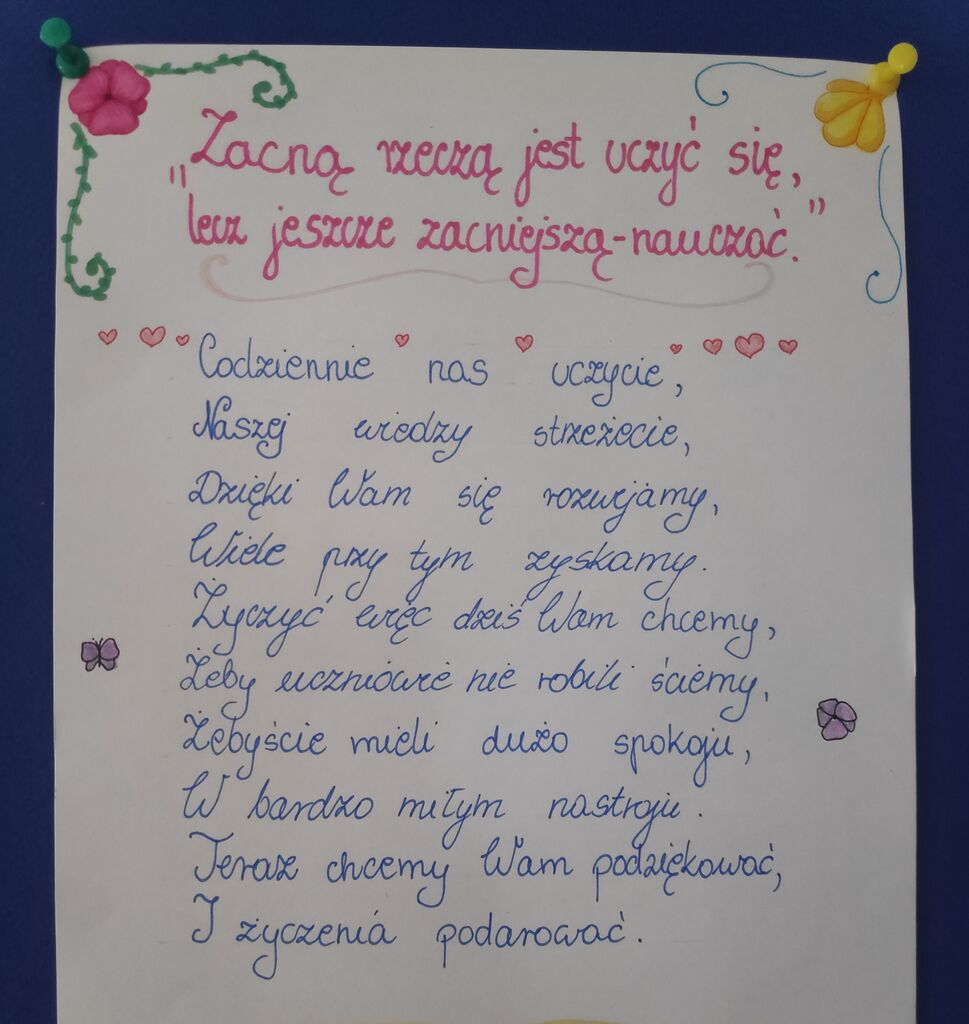 „Zacną rzeczą jest uczyć się,
lecz jeszcze zacniejszą-nauczać."
Codziennie nas uczycie,
Naszej wiedzy strzeżecie,
Dzięki Wam się rozwijamy,
Wiele przy tym zyskamy.
Życzyć więc dziś Wam chcemy,
Żeby uczniowie nie robili ściemy,
Żebyście mieli dużo spokoju,
W bardzo miłym nastroju.
Teraz chcemy Wam podziękować,
I życzenia podarować.